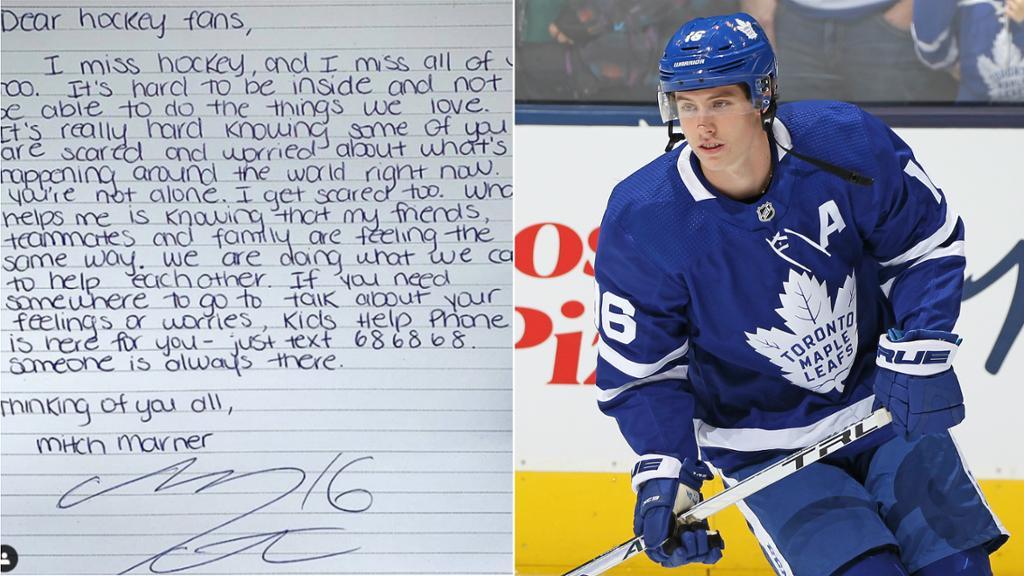 Dear hockey fans,
I miss hockey, and I miss all of
too. It's hard to be inside and not
be able to do the things we love.
It's really hard knowing some of you
are scared and worried about what's
happening around the world right now.
you're not alone. I get scared too. wha
helps me is knowing that my friends,
teammates and family are feeling the
same way. we are doing what we ca
to help eachother. If you need
somewhere to go to talk about your
feelings or worries, Kids Help Phone
is here for you- just text 686868.
someone is always there.
Thinking of you all,
mitch marner
16
16
WARRIOR
A
16
16
TORONTO
MAPLE
LEAFS
TRUE
TRUE